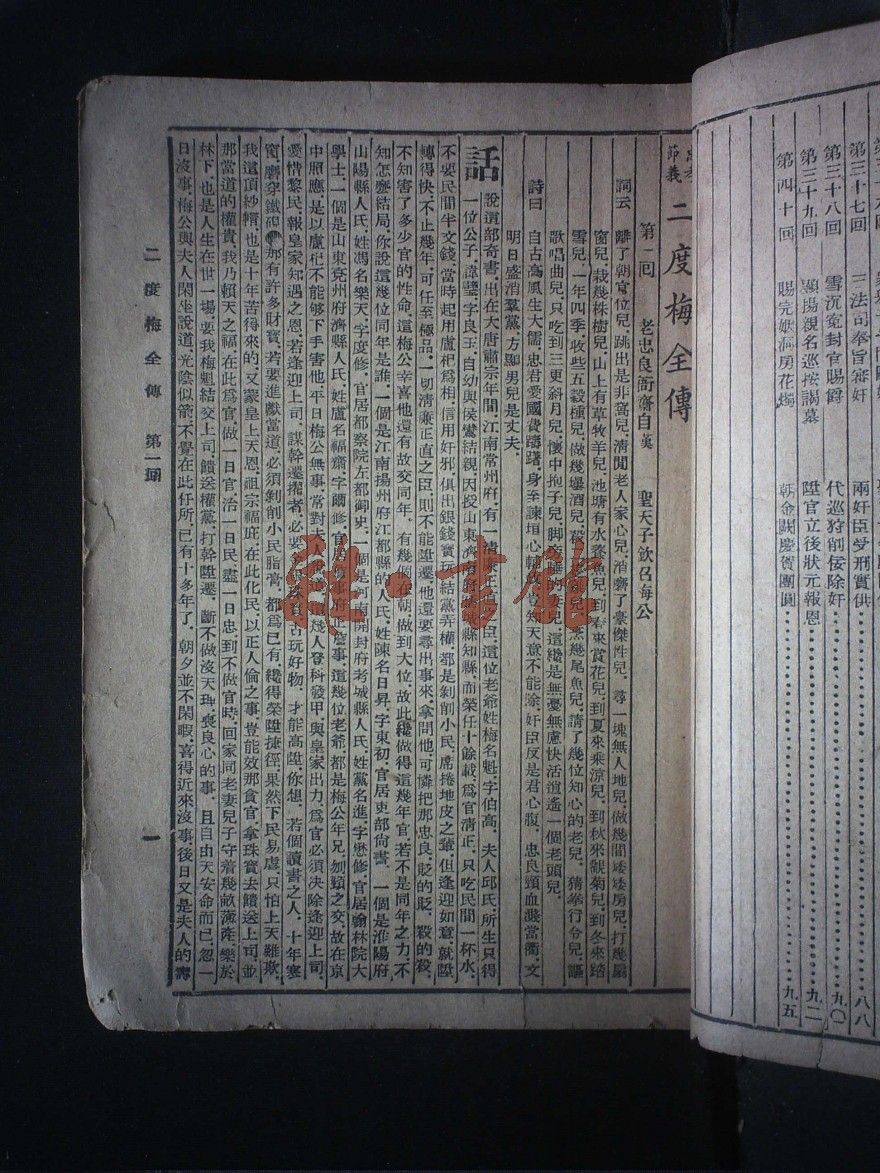 第三十七回　三法司奉旨審奸　兩奸臣受刑實供 八八
第三十八回　雪沉寃封官賜爵　代巡狩削佞除奸 九〇
第三十九回　顯揚親名巡按謁墓　陞官立後狀元報恩 九二
第四十回　賜完姻洞房花燭　朝金闕慶賀團圓 九五
節義 二度梅全傳
第一回　老忠良衙齋自漢　聖天子欽召梅公
詞云　離了朝官位兒跳出是非窩兒清閒老人家心兒消磨了豪傑性兒尋一塊無人地兒做幾間矮矮房兒打幾扇
窗兒栽幾株樹兒山上有草牧羊兒池塘有水養魚兒到春來賞花兒到夏來乘涼兒到秋來觀菊兒到冬來踏
雪兒一年四季收些五穀種兒做幾埕酒兒
歌唱曲兒只吃到三更斜月兒懷中抱子兒脚
詩曰　自古高風生大儒忠君愛國費躊躇身至諫垣心
明日盛消羣黨方顯男兒是丈夫
話說這部奇書出在大唐肅宗年間江南常州府有一
一位公子諱璧字良玉自幼與侯鸞結親因授山東
不要民間半文錢當時起用盧杞爲相信用奸邪俱出銀錢寳玩結黨弄權都是剝削小民席捲地皮之輩但逢迎如意就陞
轉得快不止幾年可任至極品一切清亷正直之臣則不能陞遷他還要尋出事來拿問他可憐把那忠良貶的貶殺的殺
不知害了多少官的性命這梅公幸喜他還有故交同年有幾個在朝做到大位故此纔做得這幾年官若不是同年之力不
知怎麼結局你說這幾位同年是誰一個是江南揚州府江都縣的人民姓陳名日昇字東初官居吏部尙書一個是淮陽府
山陽縣人民姓馮名樂天字度修官居都察院左都御史一個是
開封府考城縣人民姓黨名進字懋修官居翰林院大
學士一個是山東兗州府濟縣人民姓盧名福齋字
這幾位老爺都是梅公年兄刎頸之交故在京
中照應是以盧杞不能够下手害他平日梅公無事常對夫人
科發甲與皇家出力爲官必須決除逢迎上司
愛惜黎民報皇家知遇之恩若逢迎上司謀幹
古玩好物才能高陞你想若個讀書之人十年寒
窗磨穿鐵硯那有許多財寳若要進獻當道必須剝削小民脂膏都爲已有纔得榮陞捷徑果然下民易虐只怕上天難欺
我這頂紗帽也是十年苦得來的又蒙皇上天恩祖宗福庇在此化民以正人倫之事豈能效那貪官拿珠寳去饋送上司並
那當道的權貴我乃賴天之福在此爲官做一日官治一日民盡一日忠到不做官時回家同老妻兒子守着幾畝薄產樂於
林下也是人生在世一場要我梅魁結交上司饋送權黨打幹陞遷斷不做沒天理喪良心的事且自由天安命而已忽一
日沒事梅公與夫人閑坐說道光陰似箭不覺在此任所已有十多年了朝夕並不閑暇喜得近來沒事後日又是夫人的壽
二度梅全傳　第一回　一